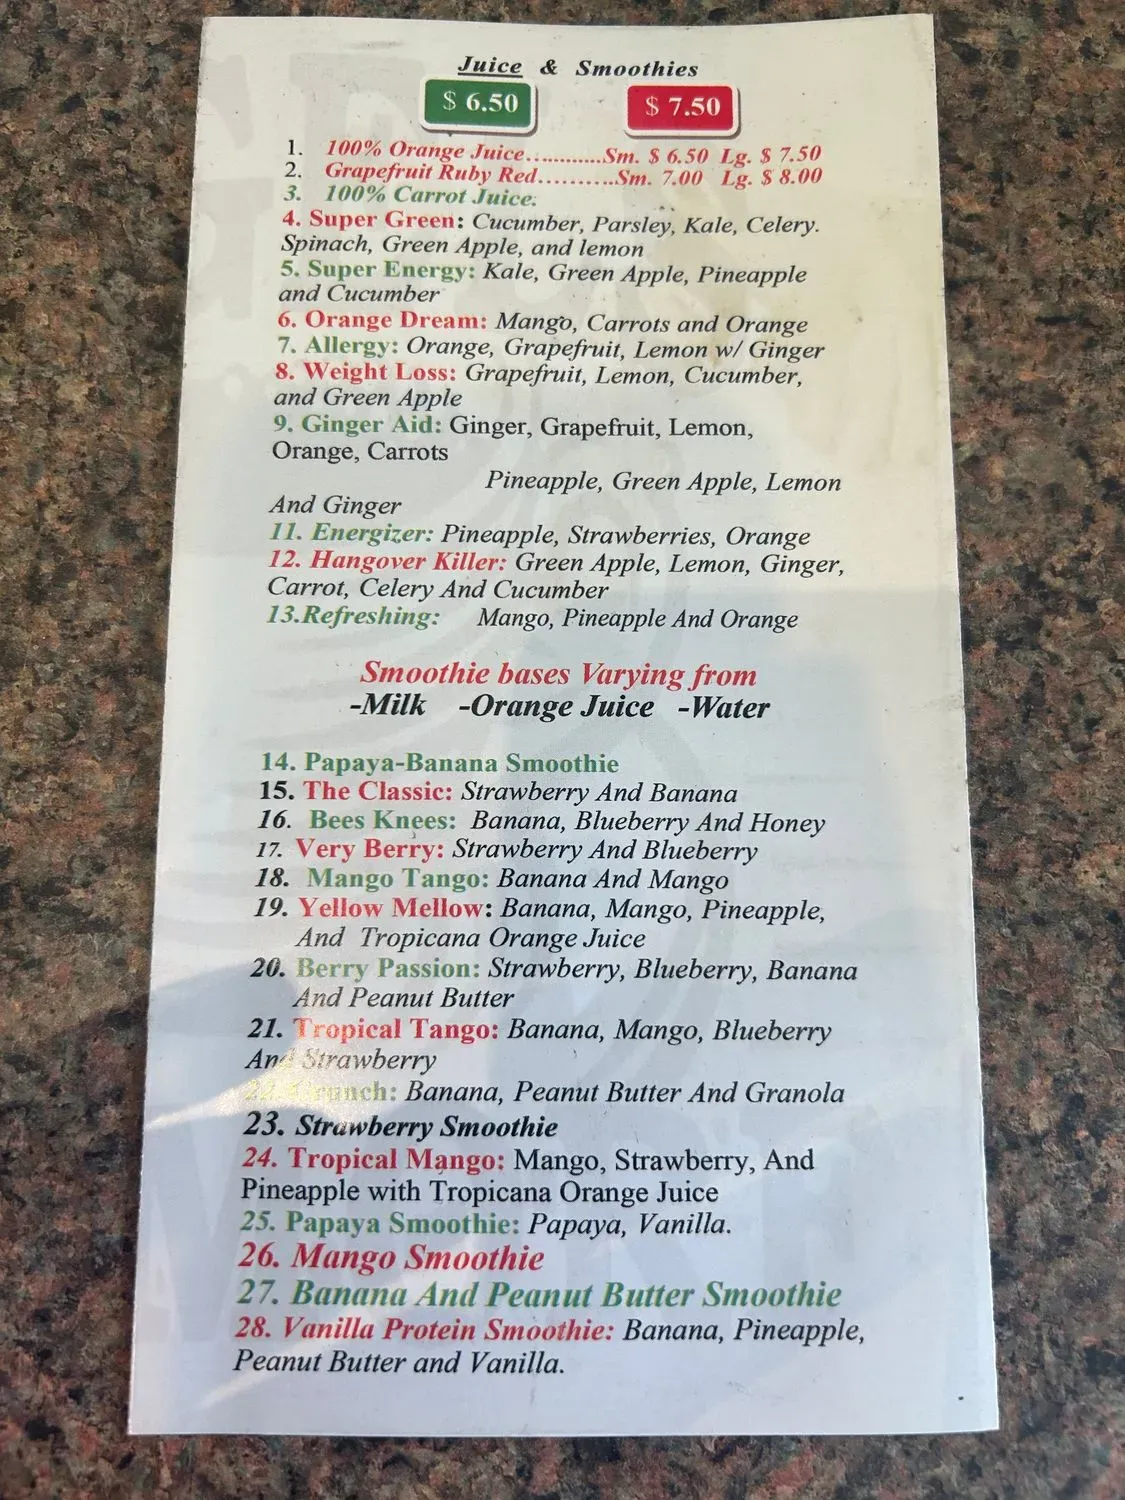 Juice & Smoothies
$ 6.50 $ 7.50
1. 100% Orange Juice............Sm. $ 6.50 Lg. $ 7.50
2. Grapefruit Ruby Red..........Sm. 7.00 Lg. $ 8.00
3. 100% Carrot Juice.
4. Super Green: Cucumber, Parsley, Kale, Celery.
Spinach, Green Apple, and lemon
5. Super Energy: Kale, Green Apple, Pineapple
and Cucumber
6. Orange Dream: Mango, Carrots and Orange
7. Allergy: Orange, Grapefruit, Lemon w/ Ginger
8. Weight Loss: Grapefruit, Lemon, Cucumber,
and Green Apple
9. Ginger Aid: Ginger, Grapefruit, Lemon,
Orange, Carrots
Pineapple, Green Apple, Lemon
And Ginger
11. Energizer: Pineapple, Strawberries, Orange
12. Hangover Killer: Green Apple, Lemon, Ginger,
Carrot, Celery And Cucumber
13.Refreshing: Mango, Pineapple And Orange
Smoothie bases Varying from
-Milk -Orange Juice -Water
14. Papaya-Banana Smoothie
15. The Classic: Strawberry And Banana
16. Bees Knees: Banana, Blueberry And Honey
17. Very Berry: Strawberry And Blueberry
18. Mango Tango: Banana And Mango
19. Yellow Mellow: Banana, Mango, Pineapple,
And Tropicana Orange Juice
20. Berry Passion: Strawberry, Blueberry, Banana
And Peanut Butter
21. Tropical Tango: Banana, Mango, Blueberry
And Strawberry
22. Crunch: Banana, Peanut Butter And Granola
23. Strawberry Smoothie
24. Tropical Mango: Mango, Strawberry, And
Pineapple with Tropicana Orange Juice
25. Papaya Smoothie: Papaya, Vanilla.
26. Mango Smoothie
27. Banana And Peanut Butter Smoothie
28. Vanilla Protein Smoothie: Banana, Pineapple,
Peanut Butter and Vanilla.